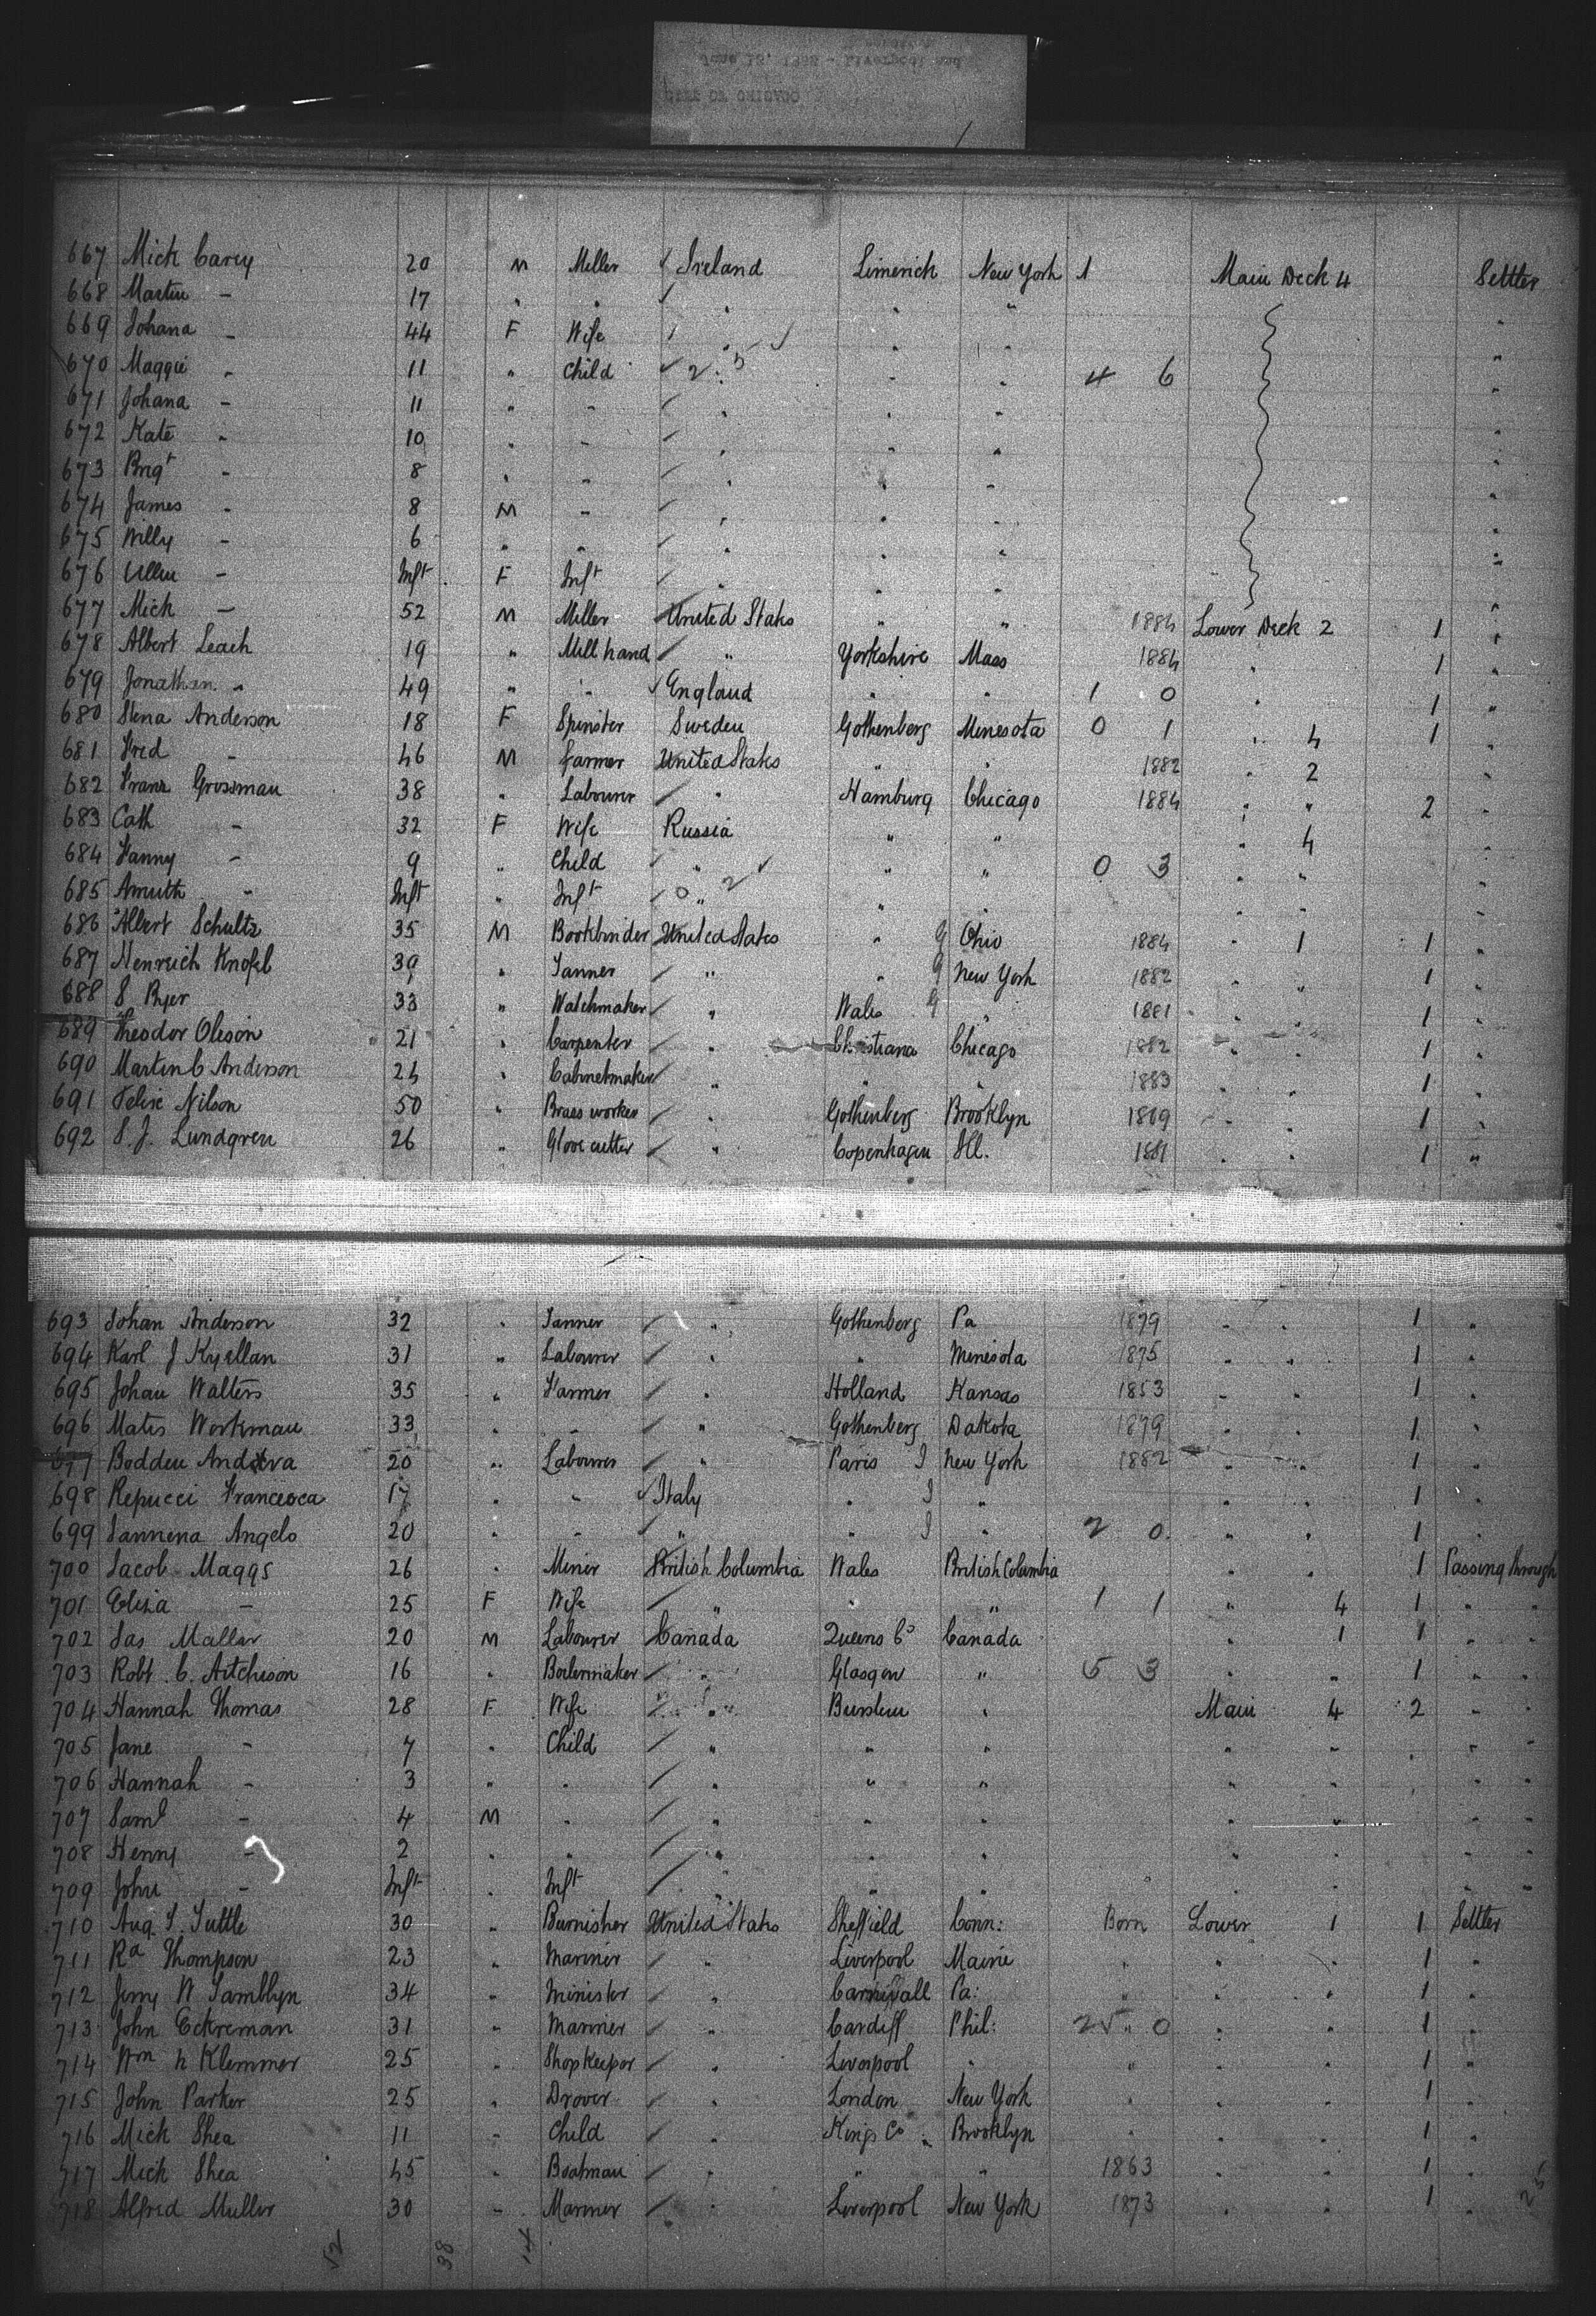 June 13, 1888 - Liverpool and
CITY OF CHICAGO
667 Mick Carey 20 M Miller ✓ Ireland Limerick New York 1 Main Deck 4 Settler
668 Martin - 17 " " ✓ " " " "
669 Johana - 44 F Wife " " " "
670 Maggie " 11 " Child ✓ 2 : 5 ✓ " " 4 6 "
671 Johana - 11 " " ✓ " " " "
672 Kate " 10 " - ✓ " " " "
673 Brigt - 8 " " ✓ " " " "
674 James - 8 M " ✓ " " " "
675 Willy - 6 " " ✓ " " " "
676 Ellen - Inft F Inft ✓ " " " "
677 Mick - 52 M Miller United States " " 1884 Lower Deck 2 1 "
678 Albert Leach 19 " Mill hand ✓ " Yorkshire Mass 1884 " 1 "
679 Jonathan " 49 " " ✓ England " " 1 0 " 1 "
680 Stena Anderson 18 F Spinster Sweden Gothenberg Minesota 0 1 " 4 1 "
681 Fred - 46 M Farmer United States " " 1882 " 2 "
682 Franz Grossman 38 " Labourer ✓ " Hamburg Chicago 1884 " " 2 "
683 Cath - 32 F Wife Russia " " " 4 "
684 Fanny - 9 " Child ✓ " ✓ " " 0 3 " " "
685 " Inft " Inft ✓ 0 " 2 " " " " "
686 Albert Schultz 35 M Bookbinder United States " G Ohio 1884 " 1 1 "
687 Henreich Knofel 39 " Tanner ✓ " " G New York 1882 " " 1 "
688 S Byer 33 " Watchmaker ✓ " Wales G " 1881 " " 1 "
689 Theodor Oleson 21 " Carpenter ✓ " Christiana Chicago 1882 " " 1 "
690 Martin C Anderson 24 " Cabinetmaker ✓ " " " 1883 " " 1 "
691 Felix Nilson 50 " Brass worker ✓ " Gothenberg Brooklyn 1869 " " 1 "
692 S. J. Lundgren 26 " Glove cutter ✓ " Copenhagen Ill. 1881 " " 1 "
693 Johan Anderson 32 " Tanner ✓ " Gothenberg Pa 1879 " " 1 "
694 Karl J Kyellan 31 " Labourer ✓ " " Minesota 1875 " " 1 "
695 Johan Walters 35 " Farmer ✓ " Holland Kansas 1853 " " 1 "
696 Mats Workman 33 " " ✓ " Gothenberg Dakota 1879 " " 1 "
697 Bodden 20 " Labourer ✓ " Paris I New York 1882 " " 1 "
698 Repucci Francesca 17 " " ✓ Italy " I " " " 1 "
699 Sannena Angelo 20 " - ✓ " " I " 2 0 " " 1 "
700 Jacob Maggs 26 " Miner British Columbia Wales British Columbia " " 1 Passing through
701 Eliza - 25 F Wife ✓ " " " 1 1 " 4 1 " "
702 Jas Mallar 20 M Labourer Canada Queens Co Canada " 1 1 " "
703 Robt. C. Aitcheson 16 " Boilermaker ✓ " Glasgow " 5 3 " " 1 " "
704 Hannah Thomas 28 F Wife " Burslem " Main 4 2 " "
705 Jane - 7 " Child ✓ " " " " " " "
706 Hannah - 3 " " ✓ " " " " " " "
707 Saml - 4 M " ✓ " " " " " " "
708 Henry - 2 " " ✓ " " " " " " "
709 John - Inft " Inft ✓ " " " " " " "
710 Aug. S. Tuttle 30 " Burnisher United States Sheffield Conn: Born Lower 1 1 Settler
711 Rd Thompson 23 " Mariner ✓ " Liverpool Maine " " " 1 "
712 Jerry W Tamblyn 34 " Minister ✓ " Carnivall Pa: " " " 1 "
713 John Eckreman 31 " Mariner ✓ " Cardiff Phil: 25 " 0 " " 1 "
714 Wm h Klemmer 25 " Shopkeeper ✓ " Liverpool " " " " 1 "
715 John Parker 25 " Drover ✓ " London New York " " " 1 "
716 Mick Shea 11 " Child ✓ " Kings Co " Brooklyn " " " 1 "
717 Mick Shea 45 " Boatman ✓ " " " 1863 " " 1 "
718 Alfred Muller 30 " Mariner ✓ " Liverpool New York 1873 " " 1 "
52 38 14